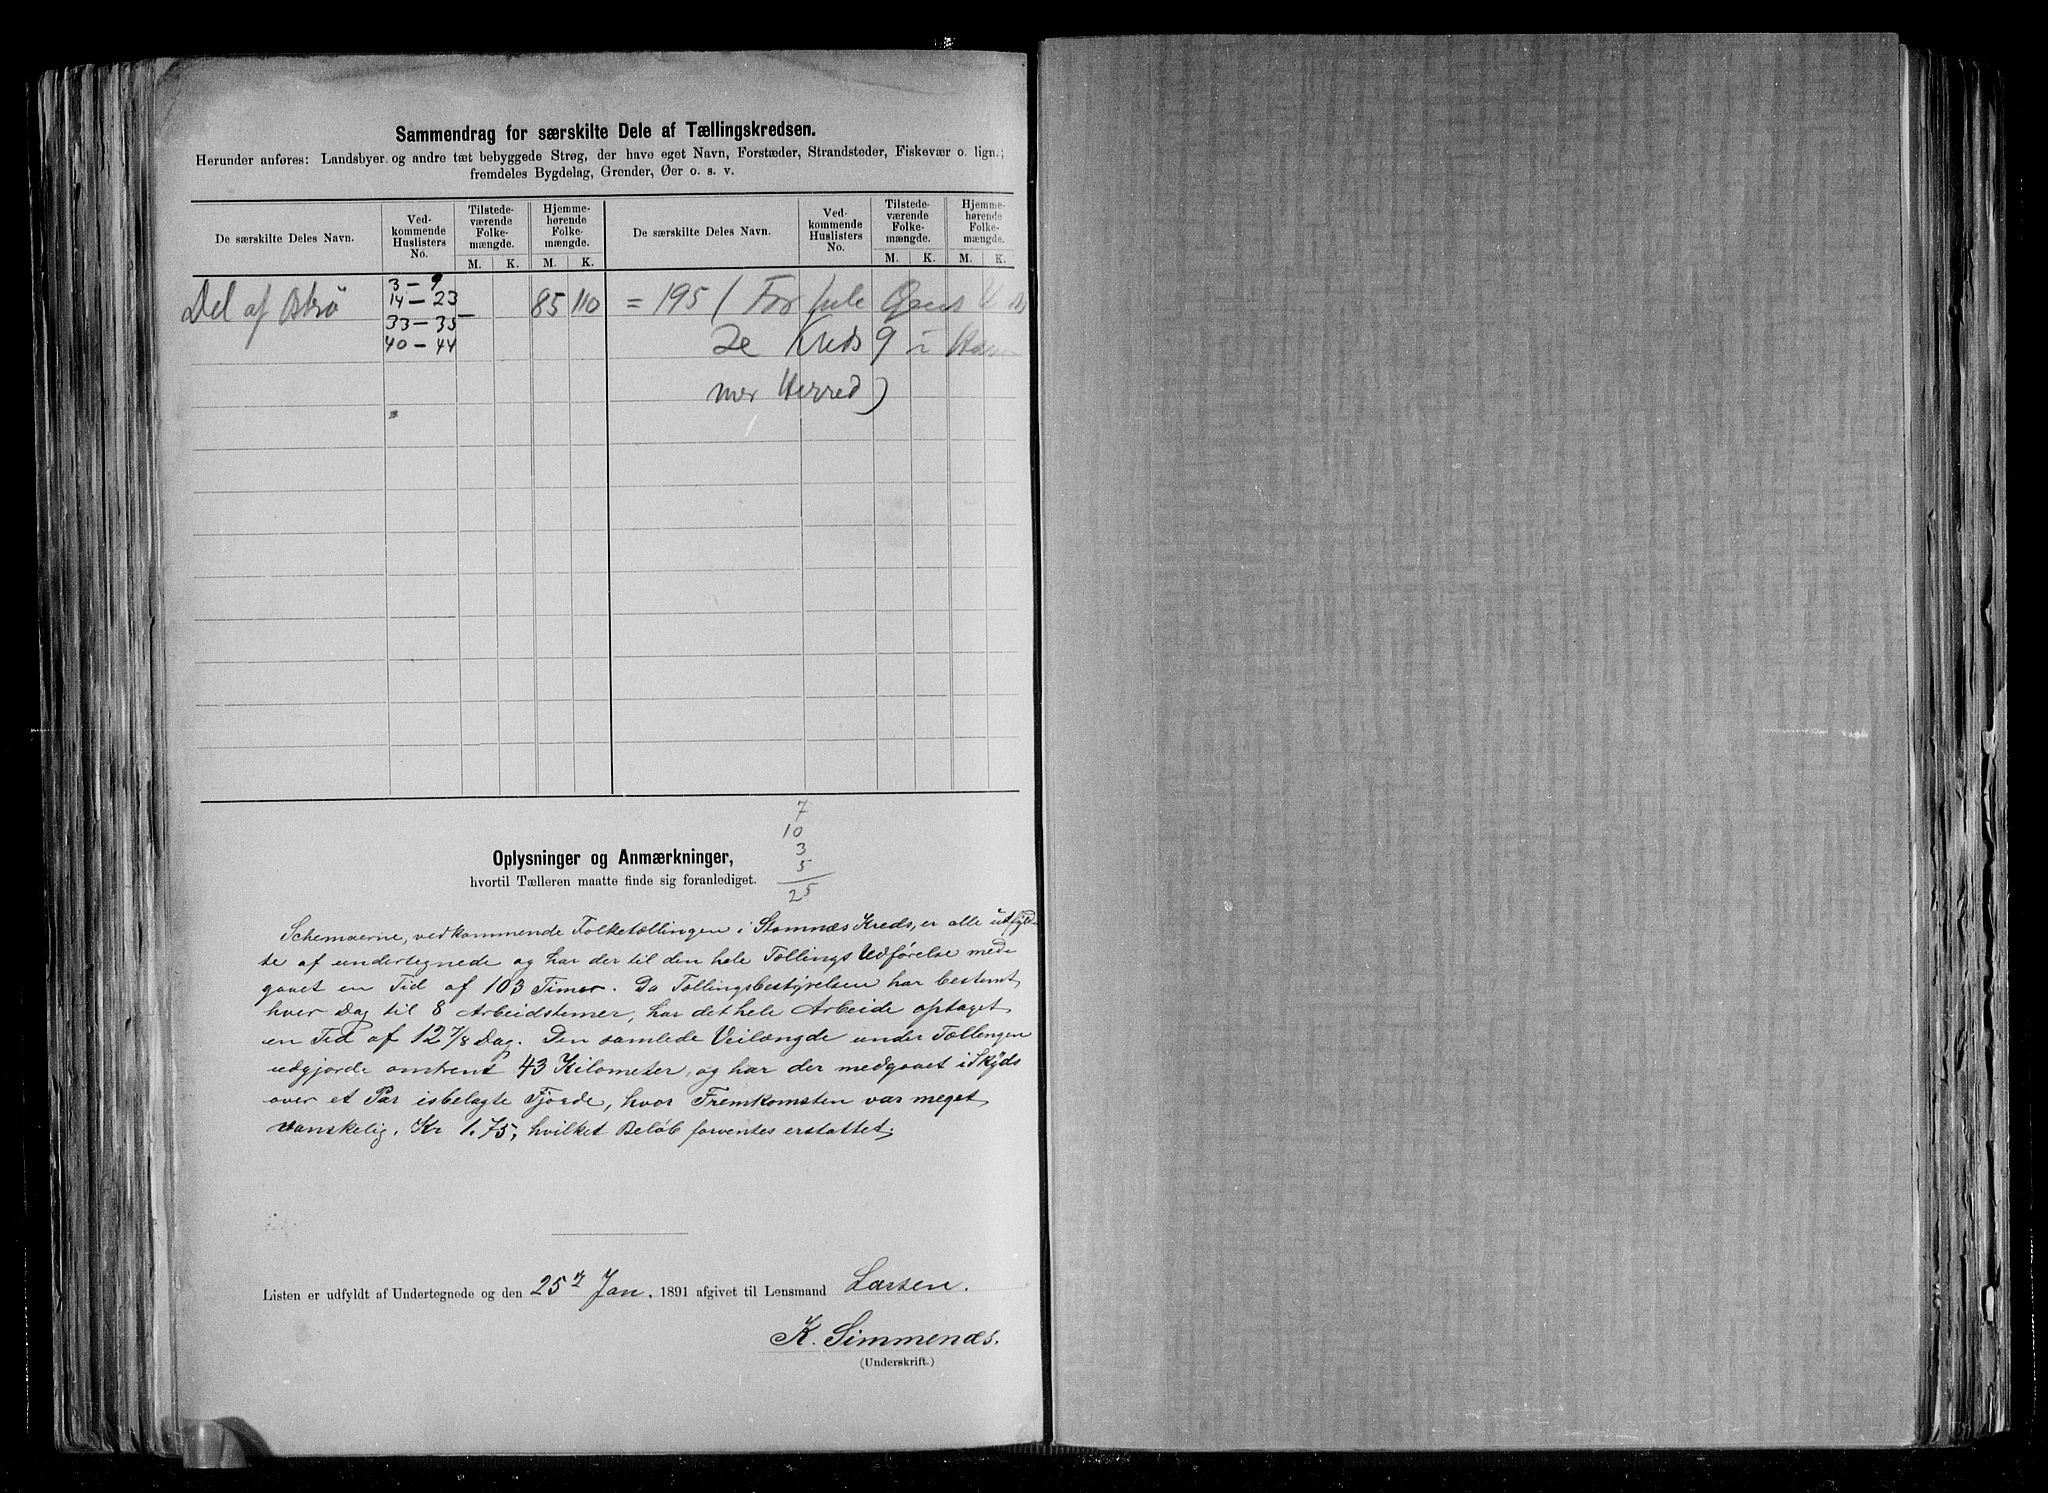 Sammendrag for særskilte Dele af Tællingskredsen.
Herunder anføres: Landsbyer og andre tæt bebyggede Strøg, der have eget Navn, Forstæder, Strandsteder, Fiskevær o. lign.;
fremdeles Bygdelag, Grender, Øer o. s. v.
De særskilte Deles Navn. Vedkommende Huslisters No. Tilstedeværende Folkemængde. Hjemmehørende Folkemængde. De særskilte Deles Navn. Vedkommende Huslisters No. Tilstedeværende Folkemængde. Hjemmehørende Folkemængde.
M. K. M. K. M. K. M. K.
3 – 9
Del af Ostrø 14 – 23 85 110 = 195 ( For hele Øens
33 – 35
40 – 44 se Kreds 9 i Ham
mer Herred)
7
10
3
5
25
Oplysninger og Anmærkninger,
hvortil Tælleren maatte finde sig foranlediget.
Schemaerne, vedkommende Folketællingen i Stamnæs Kreds, er alle utfyld-
te af undertegnede og har der til den hele Tællings Udførelse med-
gaaet en Tid af 103 Timer. Da Tællingsbestyrelsen har bestemt
hver Dag til 8 Arbeidstemer, har det hele Arbeide optaget
en Tid af 12 7/8 Dag. Den samlede Veilængde under Tællengen
udgjorde omtrent 43 Kilometer, og har der medgaaet i Skyds
over et Par isbelagte Fjorde, hvor Fremkomsten var meget
vanskelig, Kr 1.75, hvilket Beløb forventes erstattet.
Listen er udfyldt af Undertegnede og den 25 Jan. 1891 afgivet til Lensmand Larsen.
K. Simmenæs.
(Underskrift.)